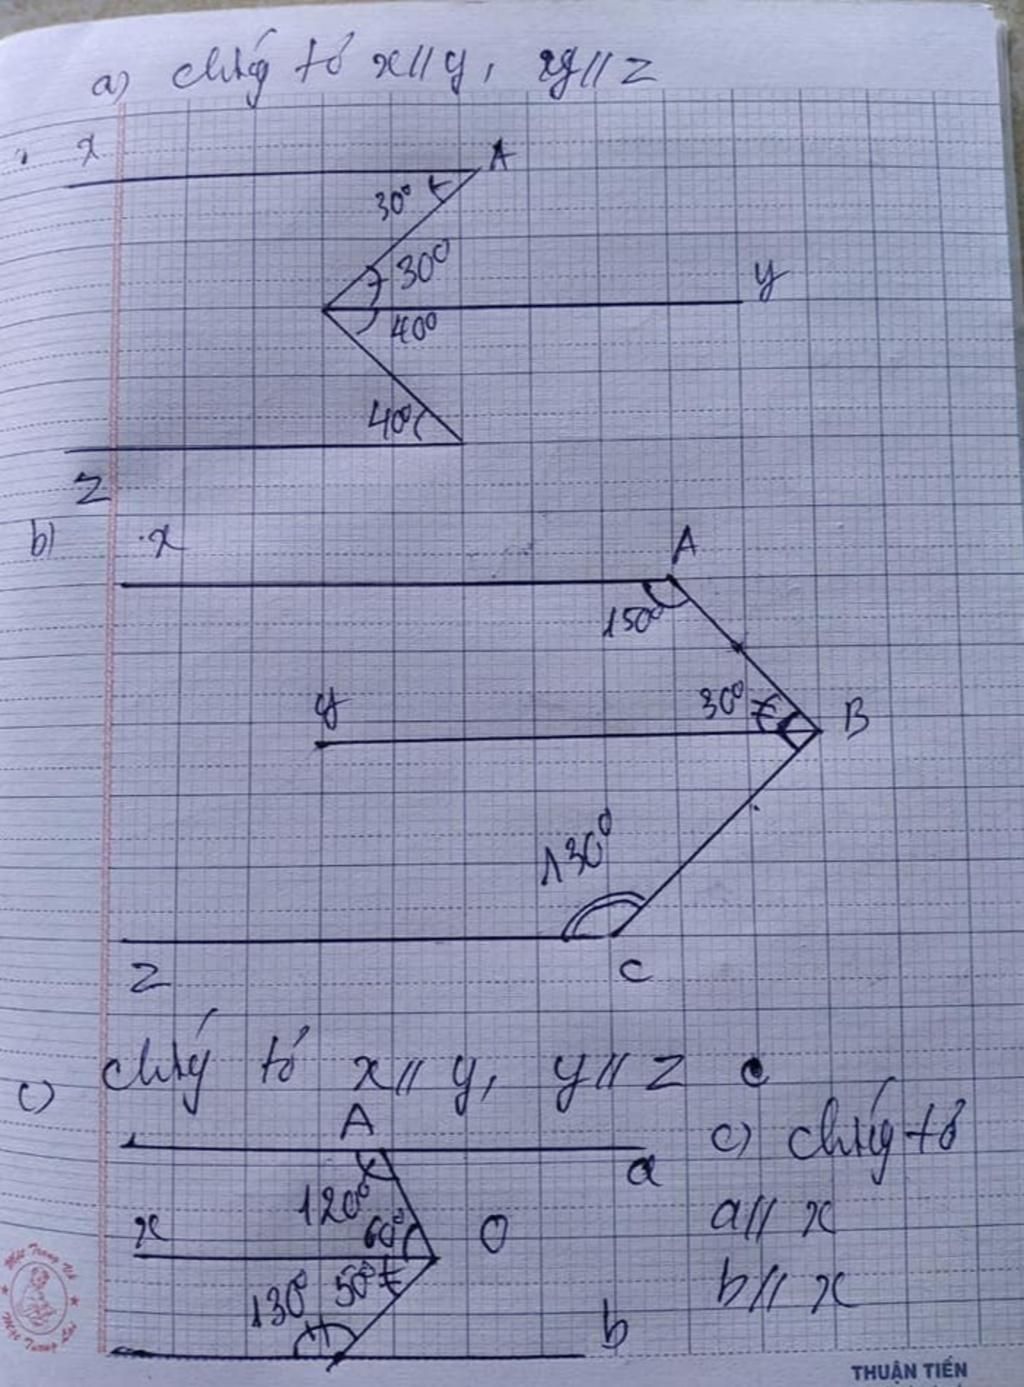 a) chứg tỏ x//y, y//z
x
A
30°
30°
y
40°
40°
z
b)
x
A
150°
y
30°
B
130°
z
C
chứg tỏ x//y, y//z
c)
A
a
c) chứg tỏ
120°
a// x
x
60°
O
b// x
130°
50°
b
THUẬN TIẾN